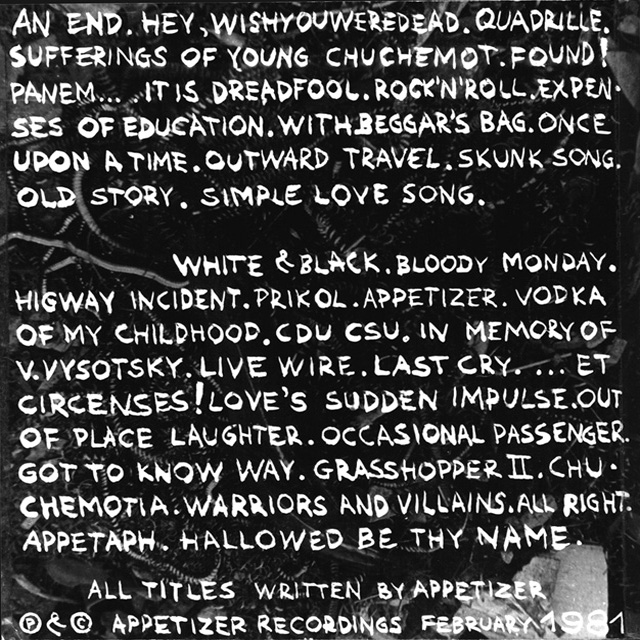 AN END. HEY, WISHYOUWEREDEAD. QUADRILLE.
SUFFERINGS OF YOUNG CHUCHEMOT. FOUND!
PANEM... . IT IS DREADFOOL. ROCK'N'ROLL. EXPEN-
SES OF EDUCATION. WITH BEGGAR'S BAG. ONCE
UPON A TIME. OUTWARD TRAVEL. SKUNK SONG.
OLD STORY. SIMPLE LOVE SONG.
WHITE & BLACK. BLOODY MONDAY.
HIGWAY INCIDENT. PRIKOL. APPETIZER. VODKA
OF MY CHILDHOOD. CDU CSU. IN MEMORY OF
V. VYSOTSKY. LIVE WIRE. LAST CRY. ... ET
CIRCENSES! LOVE'S SUDDEN IMPULSE. OUT
OF PLACE LAUGHTER. OCCASIONAL PASSENGER.
GOT TO KNOW WAY. GRASSHOPPER II. CHU-
CHEMOTIA. WARRIORS AND VILLAINS. ALL RIGHT.
APPETAPH. HALLOWED BE THY NAME.
ALL TITLES WRITTEN BY APPETIZER
℗ & © APPETIZER RECORDINGS FEBRUARY 1981